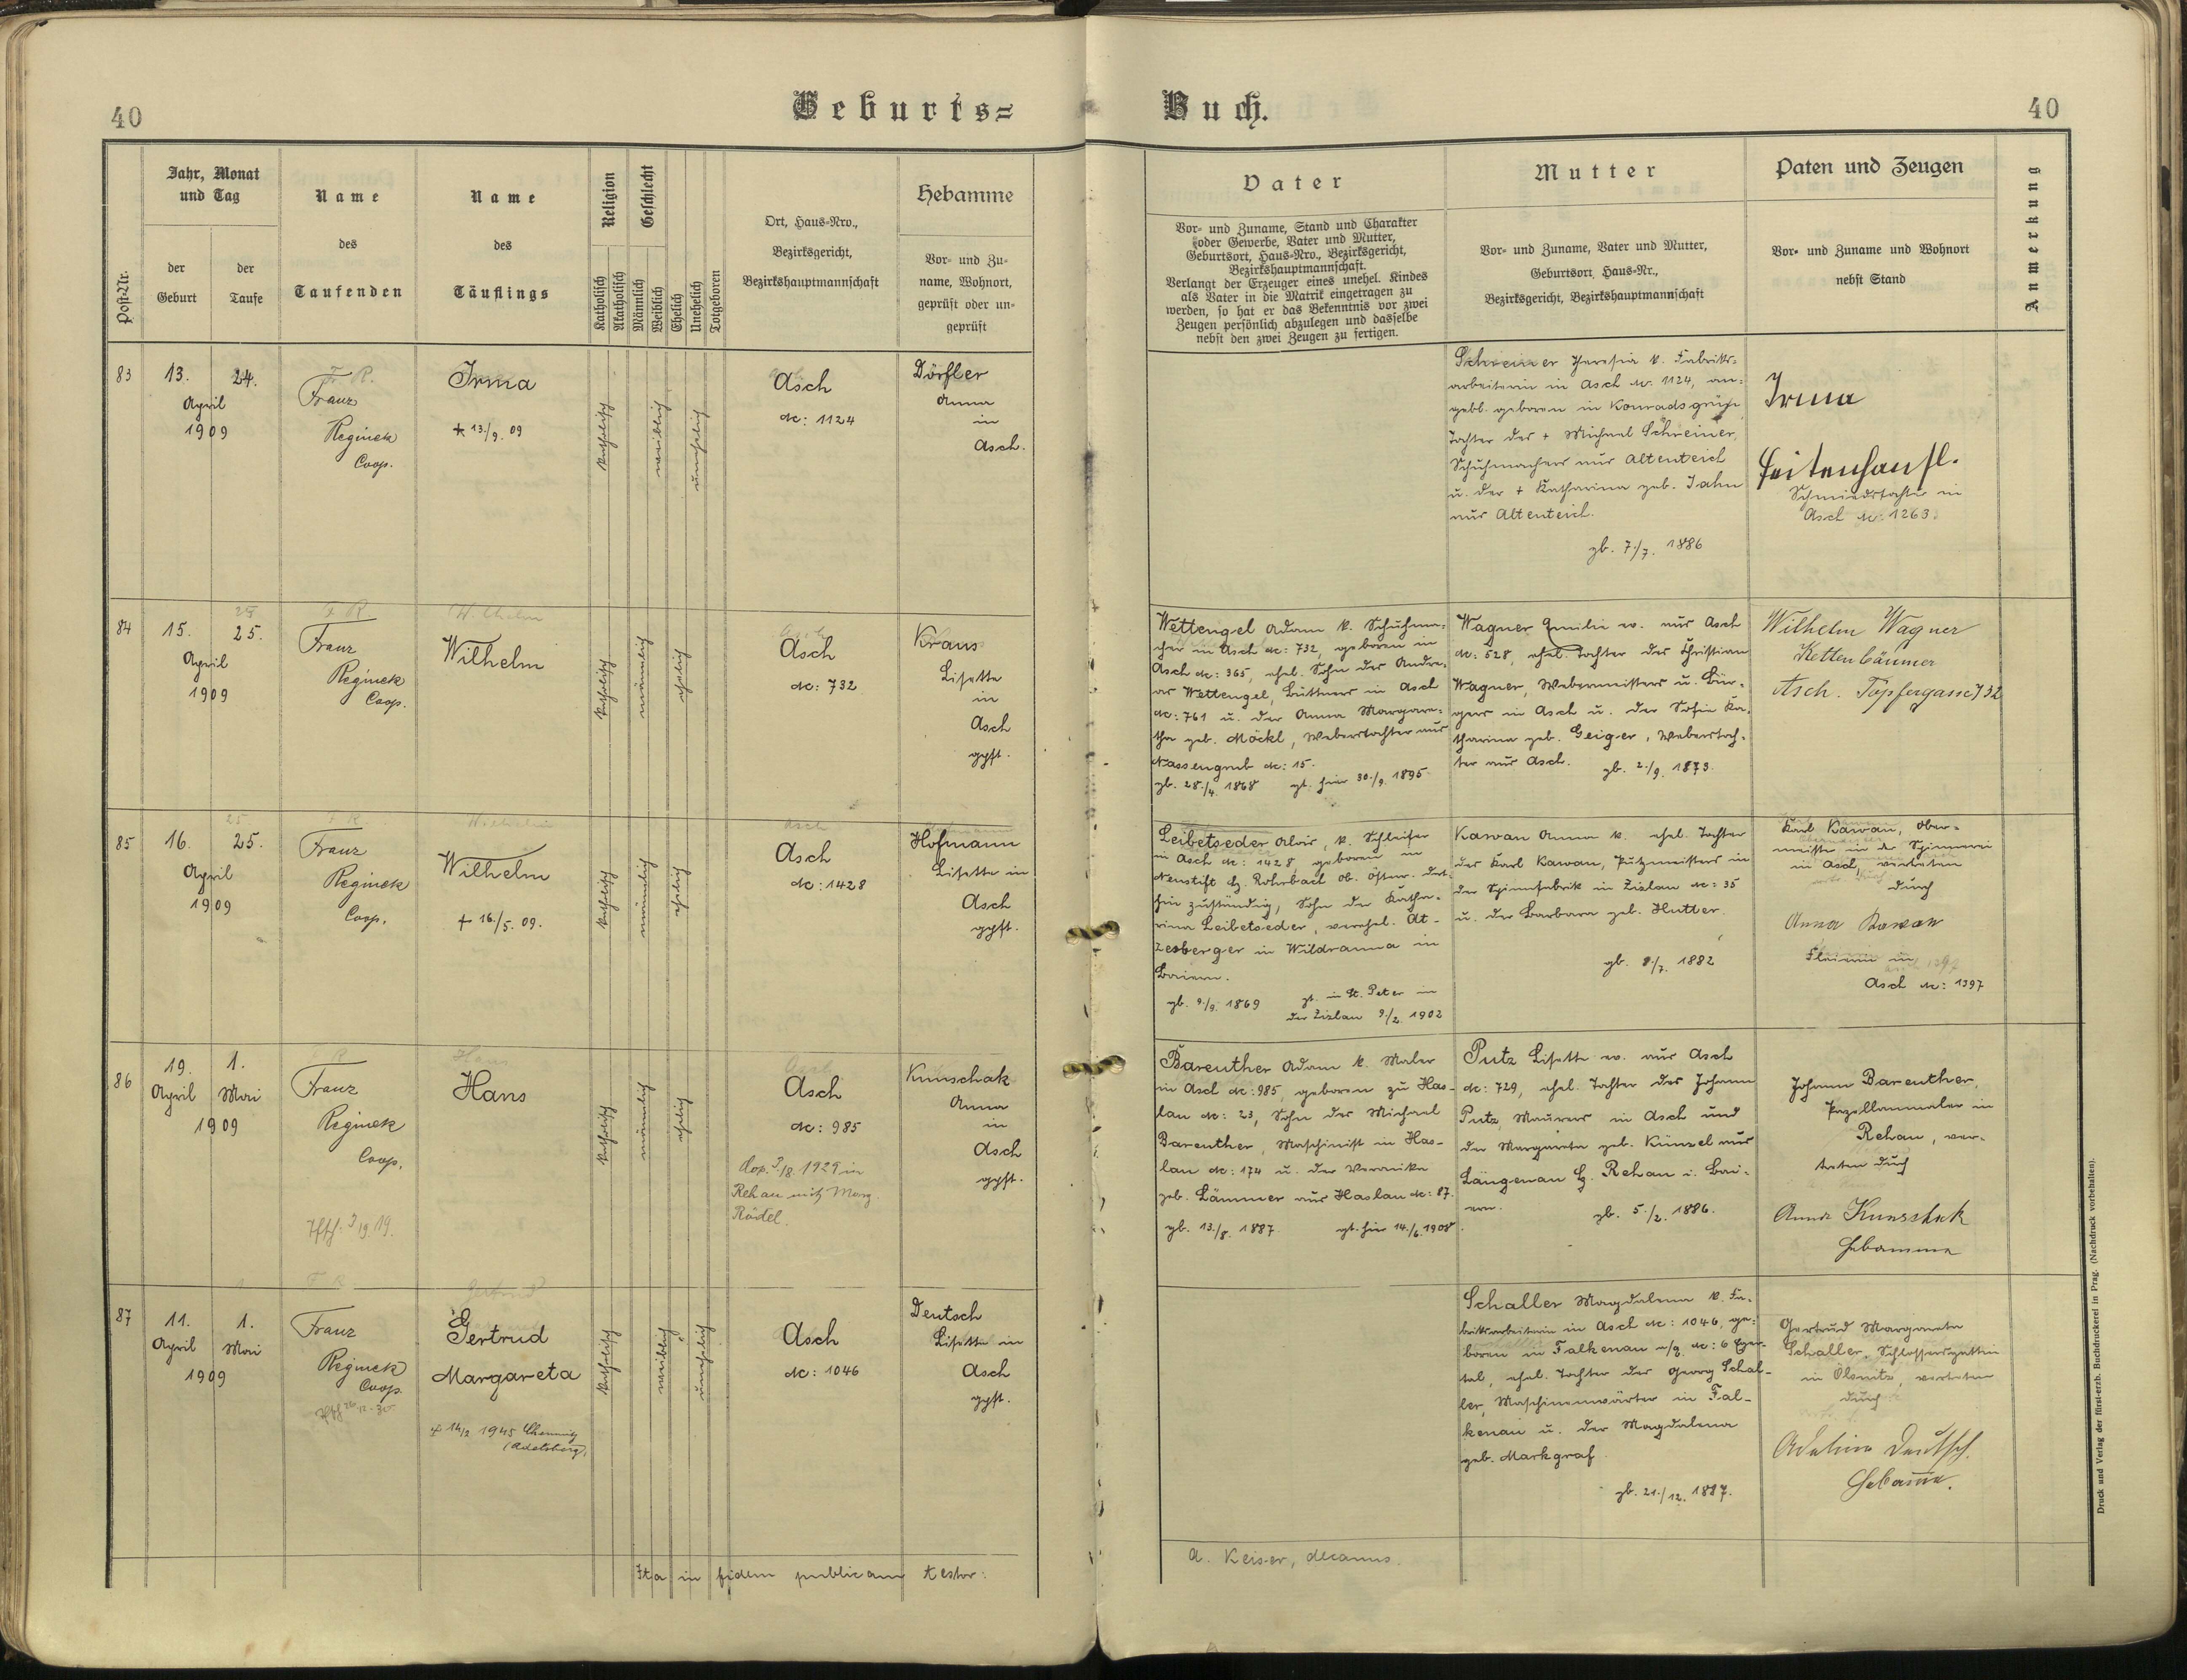 40
Geburts=
Buch.
40
Post-Nr.
Jahr, Monat
und Tag
der
Geburt
der
Taufe
Name
des
Taufenden
Name
des
Täuflings
Religion
Katholisch
Akatholisch
Geschlecht
Männlich
Weiblich
Ehelich
Unehelich
Totgeboren
Ort, Haus-Nro.,
Bezirksgericht,
Bezirkshauptmannschaft
Hebamme
Vor- und Zu-
name, Wohnort,
geprüft oder un-
geprüft
Vater
Vor- und Zuname, Stand und Charakter
oder Gewerbe, Vater und Mutter,
Geburtsort, Haus-Nro., Bezirksgericht,
Bezirkshauptmannschaft.
Verlangt der Erzeuger eines unehel. Kindes
als Vater in die Matrik eingetragen zu
werden, so hat er das Bekenntnis vor zwei
Zeugen persönlich abzulegen und dasselbe
nebst den zwei Zeugen zu fertigen.
Mutter
Vor- und Zuname, Vater und Mutter,
Geburtsort, Haus-Nr.,
Bezirksgericht, Bezirkshauptmannschaft
Paten und Zeugen
Vor- und Zuname und Wohnort
nebst Stand
Anmerkung
83
13.
24.
April
1909
Franz
Reginek
Coop.
Irma
+ 13./9. 09
katholisch
weiblich
unehelich
Asch
Nc: 1124
Dörfler
Anna
in
Asch.
Schreiner Theresia k. Fabriks-
arbeiterin in Asch Nc: 1124, an-
gebl. geboren in Konradsgrün,
Tochter des + Michael Schreiner,
Schuhmachers aus Altenteich
u. der + Katharina geb. Jahn
aus Altenteich.
gb. 7./7. 1886
Irma
Feitenhansl.
Schmiedstochter in
Asch Nc: 1263.
84
15.
25.
April
1909
Franz
Reginek
Coop.
Wilhelm
katholisch
männlich
ehelich
Asch
Nc: 732
Kraus
Lisette
in
Asch
gpft.
Wettengel Adam k. Schuhma-
cher in Asch Nc: 732, geboren in
Asch Nc: 365, ehel. Sohn des Andre-
as Wettengel, Büttners in Asch
Nc: 761 u. der Anna Margare-
tha geb. Möckl, Weberstochter aus
Nassengrub Nc: 15.
gb. 28./4. 1868 gt. hier 30./9. 1895.
Wagner Emilie ev. aus Asch
Nc: 528, ehel. Tochter des Christian
Wagner, Webermeisters u. Bür-
gers in Asch u. der Sofie Ka-
tharina geb. Geiger, Weberstoch-
ter aus Asch. gb. 2./9. 1873.
Wilhelm Wagner
Kettenbäumer
Asch. Töpfergasse 732
85
16.
25.
April
1909
Franz
Reginek
Coop.
Wilhelm
+ 16./5. 09.
katholisch
männlich
ehelich
Asch
Nc: 1428
Hofmann
Lisette in
Asch
gpft.
Leibetseder Alois, k. Schleifer
in Asch Nc: 1428, geboren in
Neustift Bz. Rohrbach ob. Öster. dort-
hin zuständig, Sohn der Katha-
rina Leibetseder, verehel. At-
zesberger in Wildranna in
Baiern.
gb. 9./9. 1869 gt. in St. Peter in
der Zizlau 9./2. 1902
Kawan Anna k. ehel. Tochter
des Karl Kawan, Putzmeisters in
der Spinnfabrik in Zizlau Nc: 35
u. der Barbara geb. Hutter.
gb. 8./7. 1882
Karl Kawan, Ober-
meister in der Spinnerei
in Asch, vertreten
durch
Anna Kawan
in
Asch Nc: 1397
86
19.
1.
April
Mai
1909
Franz
Reginek
Coop.
Hans
katholisch
männlich
ehelich
Asch
Nc: 985
Cop. 3/8. 1929 in
Rehau mit Marg.
Rädel.
Kunschak
Anna
in
Asch
gpft.
Bareuther Adam k. Maler
in Asch Nc: 985, geboren zu Has-
lau Nc: 23, Sohn des Michael
Bareuther, Maschinist in Has-
lau Nc: 174 u. der Veronika
geb. Lämmer aus Haslau Nc: 87.
gb. 13./8. 1887. gt. hier 14./6. 1908
Putz Lisette ev. aus Asch
Nc: 729, ehel. Tochter des Johann
Putz, Maurers in Asch und
der Margareta geb. Künzel aus
Längenau Bz. Rehau i. Bai-
ern. gb. 5./2. 1886.
Johann Bareuther,
Porzellanmaler in
Rehau, ver-
treten durch
Anna Kunschak
Hebamme
87
11.
1.
April
Mai
1909
Franz
Reginek
Coop.
Gertrud
Margareta
+ 14/2 1945 Chemnitz
(Adelsberg).
katholisch
weiblich
unehelich
Asch
Nc: 1046
Deutsch
Lisette in
Asch
gpft.
Schaller Magdalena k. Fa-
briksarbeiterin in Asch Nc: 1046, ge-
boren in Falkenau a/g. Nc: 6 Eger-
tal, ehel. Tochter des Georg Schal-
ler, Maschinenwärter in Fal-
kenau u. der Magdalena
geb. Markgraf
gb. 21./12. 1887.
Gertrud Margareta
Schaller, Schlossersgattin
in Ölsnitz, vertreten
durch
Adeline Deutsch.
Hebamme.
Ita in fidem publicam testor:
A. Keiser, decanus.
Druck und Verlag der fürst-erzb. Buchdruckerei in Prag. (Nachdruck vorbehalten).